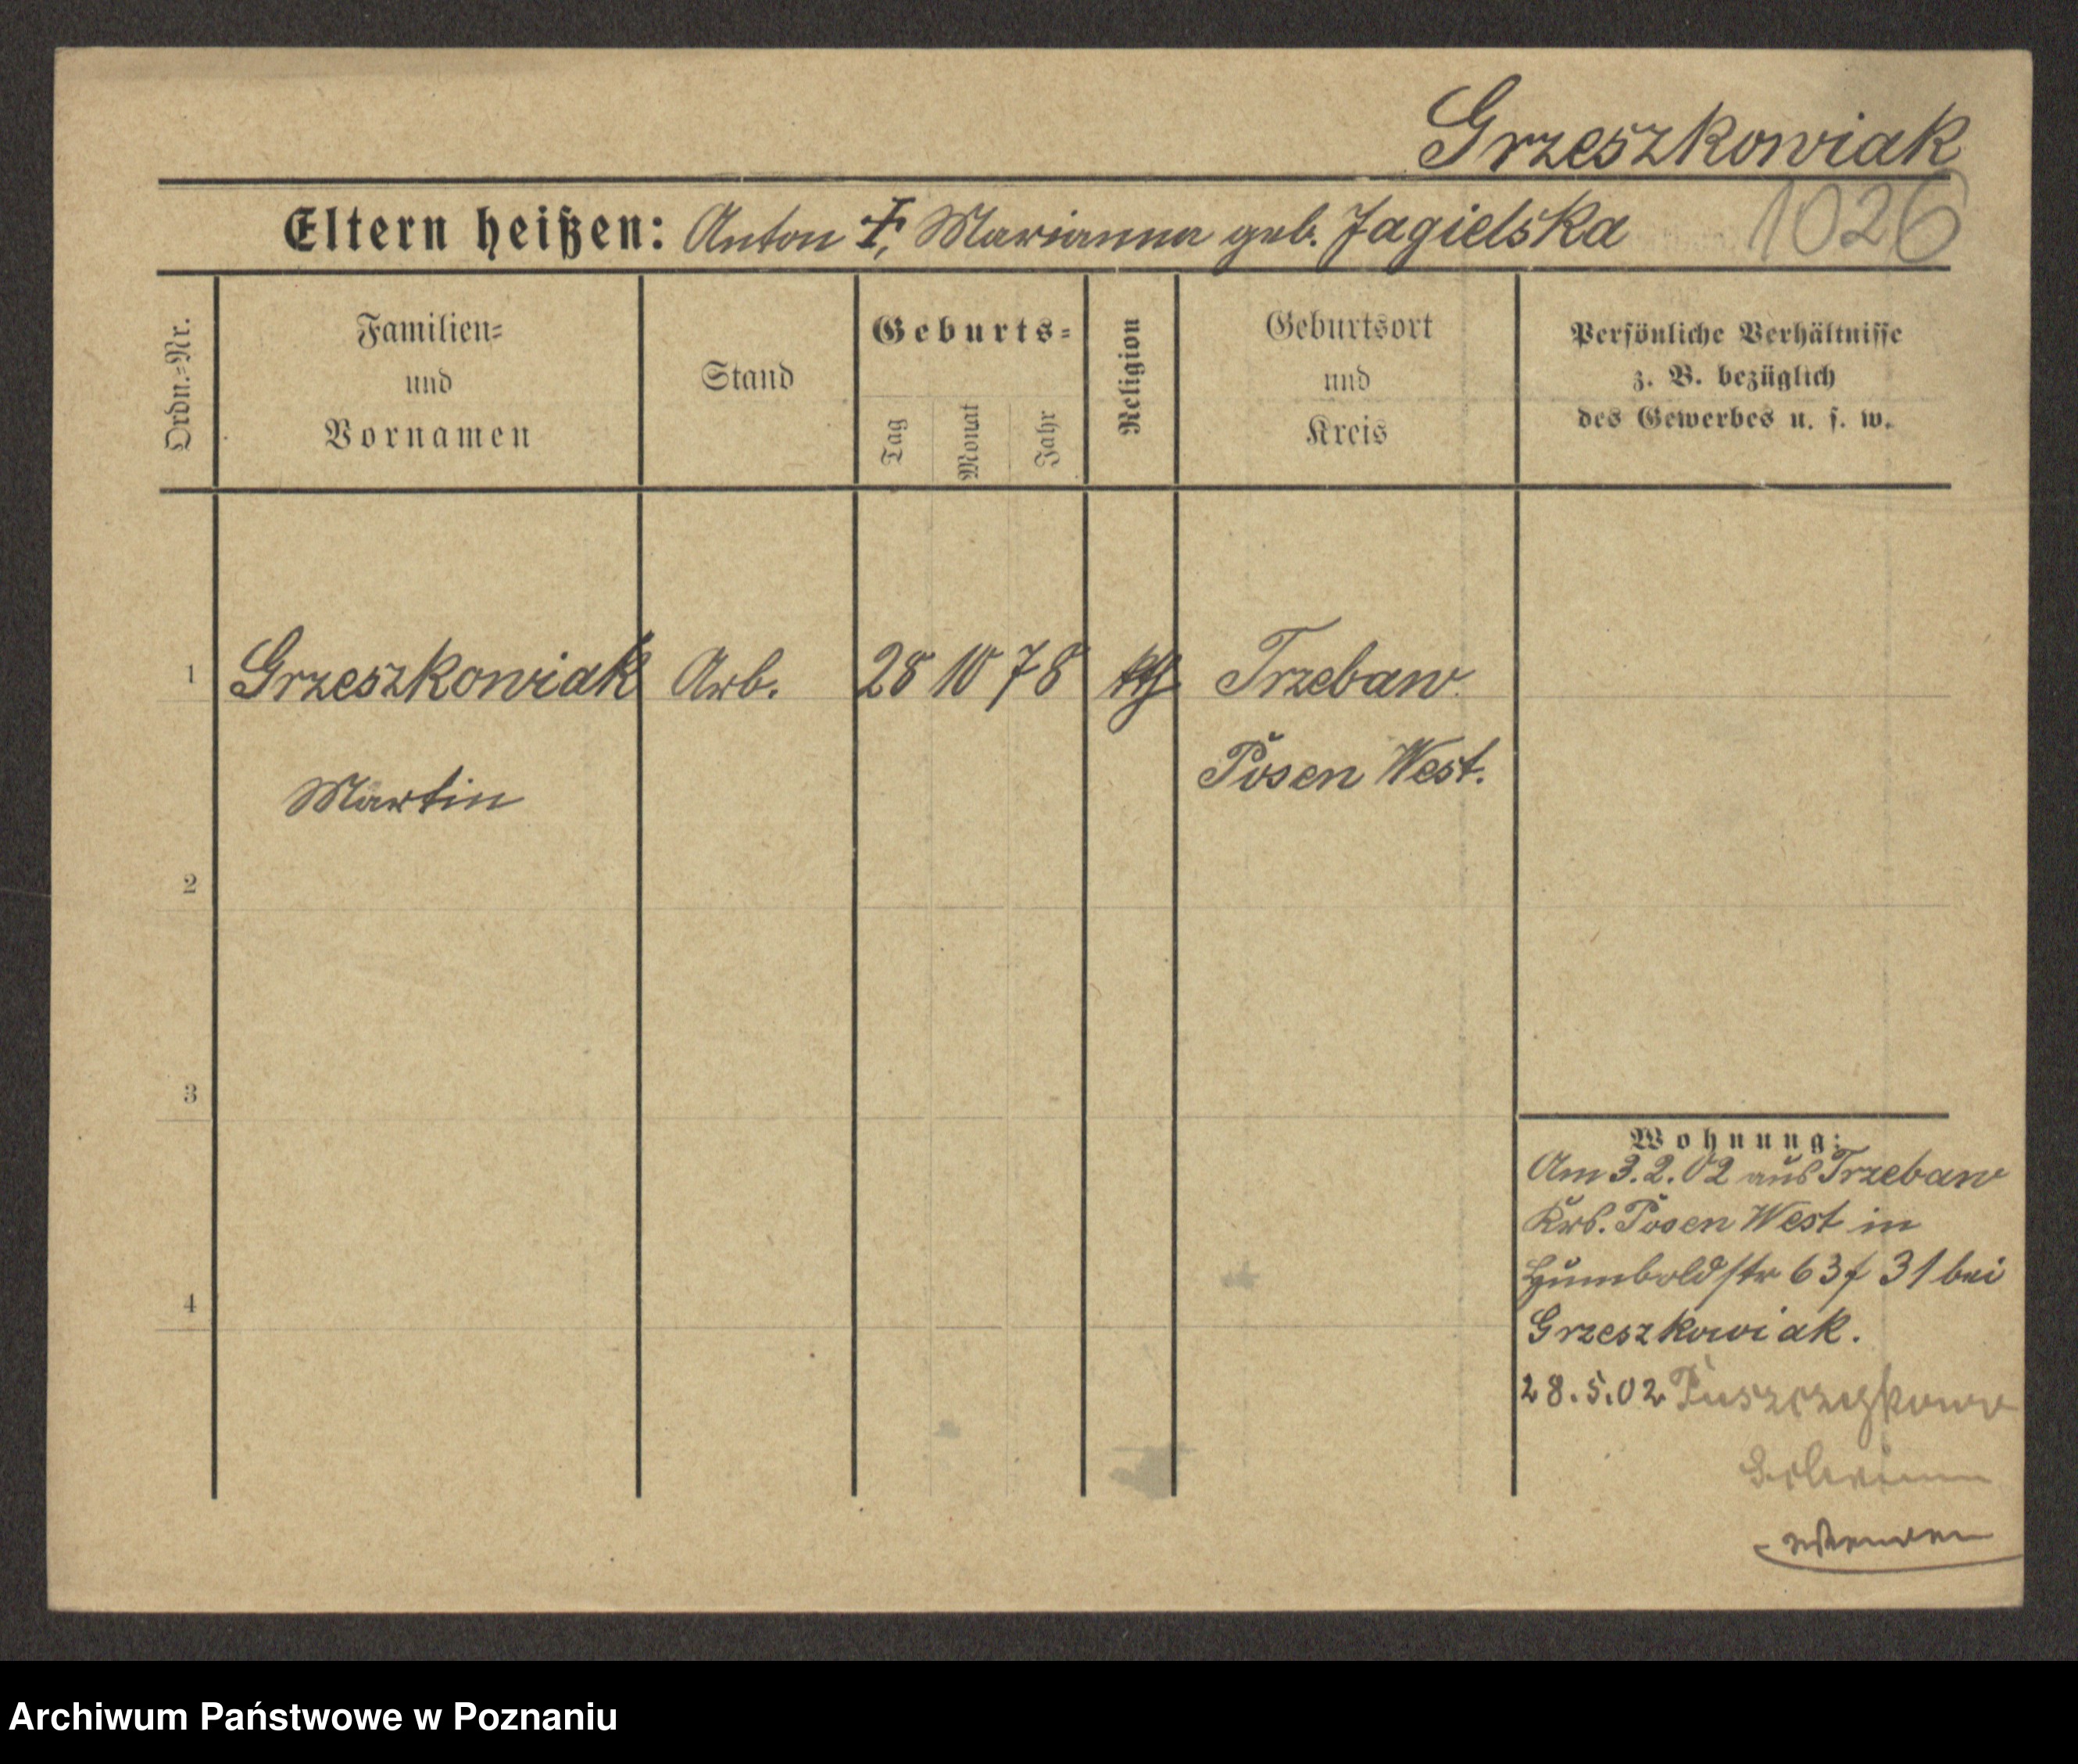 Grzeszkowiak
Eltern heißen: Anton †, Marianna geb. Jagielska 1026
Ordn.-Nr.
Familien-
und
Vornamen
Stand
Geburts-
Tag
Monat
Jahr
Religion
Geburtsort
und
Kreis
Persönliche Verhältnisse
z. B. bezüglich
des Gewerbes u. s. w.
1 Grzeszkowiak Arb. 28 10 78 kth Trzebaw
Posen West.
Martin
2
3
4
Wohnung:
Am 3.2.02 aus Trzebaw
Krs. Posen West in
Humboldstr 63 f 31 bei
Grzeszkowiak.
28.5.02 Puszczykowo
wenden
Archiwum Państwowe w Poznaniu